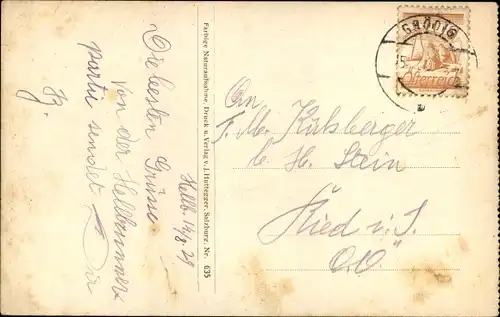 Hellb. 14/8.29
Die besten Grüsse
von der
partie sendet Dir
Farbige Naturaufnahme, Druck u. Verlag v. J. Huttegger, Salzburg, Nr. 635
GRÖDIG
Österreich
An
F. M. Kühberger
b. H. Stein
Ried i. I.
O.Ö.